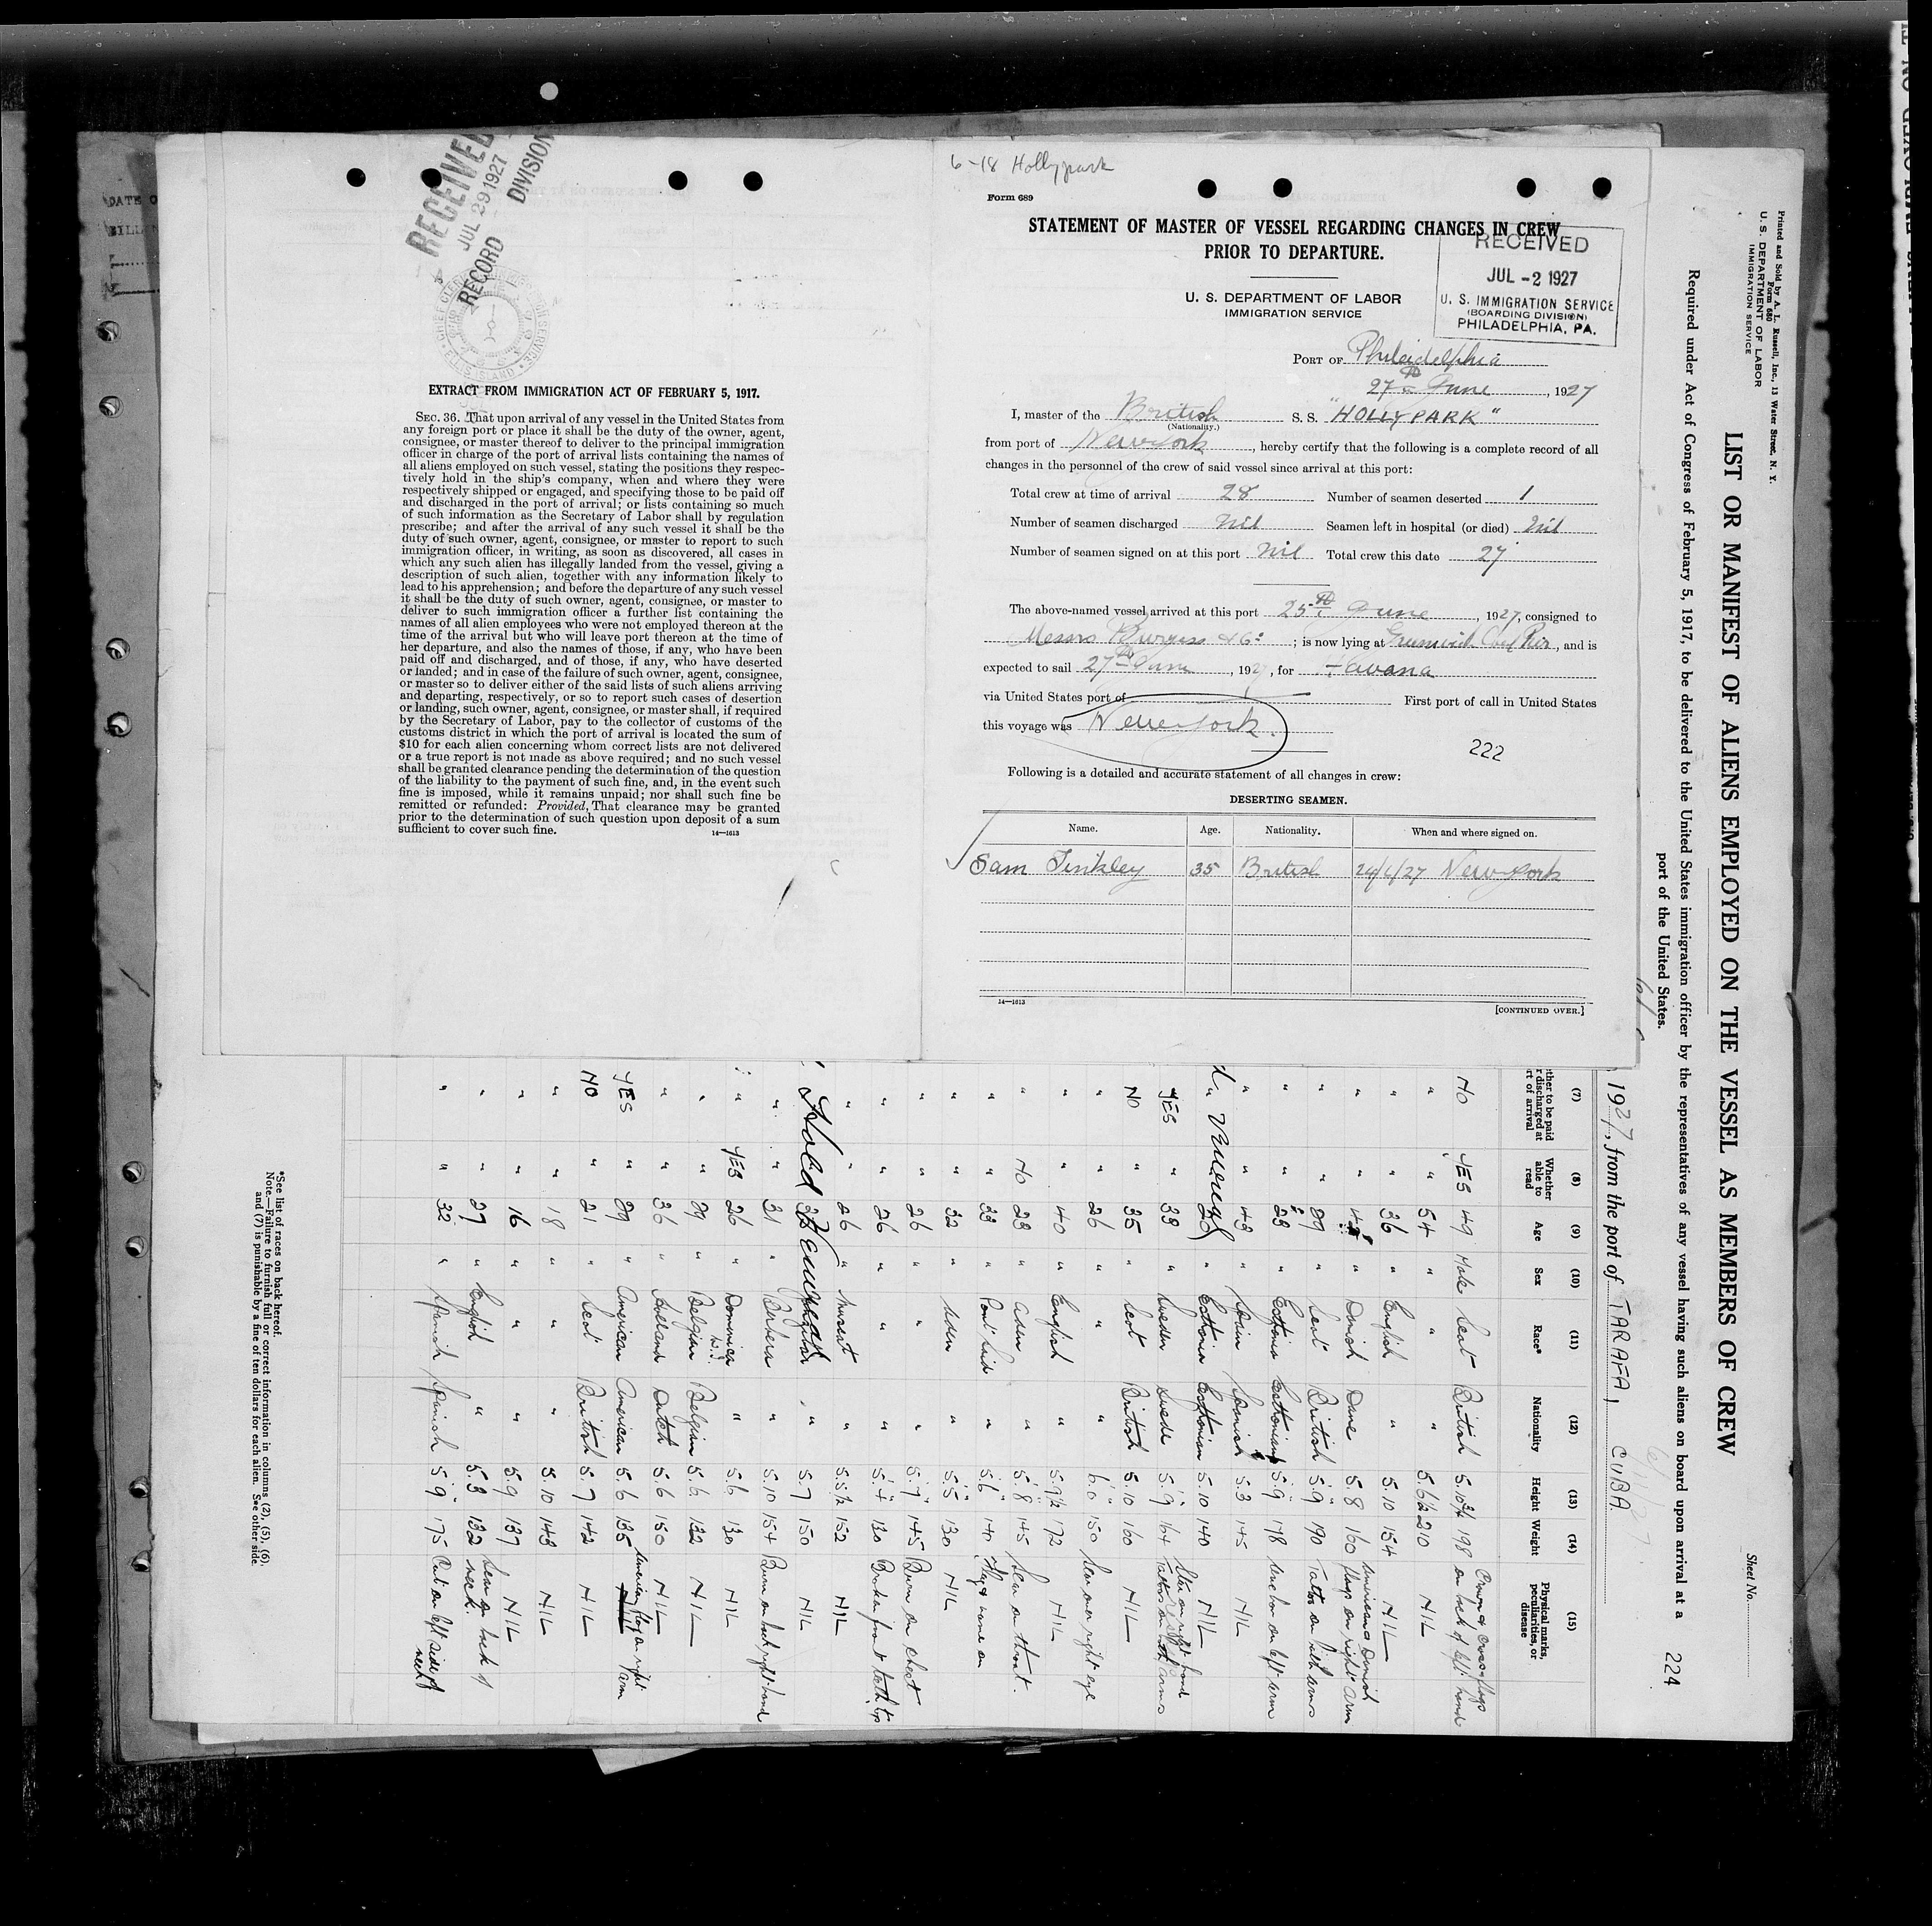 RECEIVED
JUL 29 1927
RECORD DIVISION
EXTRACT FROM IMMIGRATION ACT OF FEBRUARY 5, 1917.
SEC. 36. That upon arrival of any vessel in the United States from
any foreign port or place it shall be the duty of the owner, agent,
consignee, or master thereof to deliver to the principal immigration
officer in charge of the port of arrival lists containing the names of
all aliens employed on such vessel, stating the positions they respec-
tively hold in the ship's company, when and where they were
respectively shipped or engaged, and specifying those to be paid off
and discharged in the port of arrival; or lists containing so much
of such information as the Secretary of Labor shall by regulation
prescribe; and after the arrival of any such vessel it shall be the
duty of such owner, agent, consignee, or master to report to such
immigration officer, in writing, as soon as discovered, all cases in
which any such alien has illegally landed from the vessel, giving a
description of such alien, together with any information likely to
lead to his apprehension; and before the departure of any such vessel
it shall be the duty of such owner, agent, consignee, or master to
deliver to such immigration officer a further list containing the
names of all alien employees who were not employed thereon at the
time of the arrival but who will leave port thereon at the time of
her departure, and also the names of those, if any, who have been
paid off and discharged, and of those, if any, who have deserted
or landed; and in case of the failure of such owner, agent, consignee,
or master so to deliver either of the said lists of such aliens arriving
and departing, respectively, or so to report such cases of desertion
or landing, such owner, agent, consignee, or master shall, if required
by the Secretary of Labor, pay to the collector of customs of the
customs district in which the port of arrival is located the sum of
$10 for each alien concerning whom correct lists are not delivered
or a true report is not made as above required; and no such vessel
shall be granted clearance pending the determination of the question
of the liability to the payment of such fine, and, in the event such
fine is imposed, while it remains unpaid; nor shall such fine be
remitted or refunded: Provided, That clearance may be granted
prior to the determination of such question upon deposit of a sum
sufficient to cover such fine.
14—1613
6-18 Hollypark
Form 689
STATEMENT OF MASTER OF VESSEL REGARDING CHANGES IN CREW
PRIOR TO DEPARTURE.
RECEIVED
JUL -2 1927
U. S. IMMIGRATION SERVICE
(BOARDING DIVISION)
PHILADELPHIA, PA.
U. S. DEPARTMENT OF LABOR
IMMIGRATION SERVICE
PORT OF Philadelphia
27th June, 1927
I, master of the British S. S. "HOLLYPARK"
(Nationality.)
from port of New York, hereby certify that the following is a complete record of all
changes in the personnel of the crew of said vessel since arrival at this port:
Total crew at time of arrival 28 Number of seamen deserted 1
Number of seamen discharged Nil Seamen left in hospital (or died) Nil
Number of seamen signed on at this port Nil Total crew this date 27
The above-named vessel arrived at this port 25th June, 1927, consigned to
Messrs Burgess & Co; is now lying at Pier, and is
expected to sail 27th June, 1927, for Havana
via United States port of First port of call in United States
this voyage was New York.
222
Following is a detailed and accurate statement of all changes in crew:
DESERTING SEAMEN.
Name. Age. Nationality. When and where signed on.
Sam Tinkley 35 British New York
14—1613
[CONTINUED OVER.]
Printed and Sold by A. L. Russell, Inc., 13 Water Street, N. Y.
Form 680
U. S. DEPARTMENT OF LABOR
IMMIGRATION SERVICE
Sheet No.
LIST OR MANIFEST OF ALIENS EMPLOYED ON THE VESSEL AS MEMBERS OF CREW
Required under Act of Congress of February 5, 1917, to be delivered to the United States immigration officer by the representatives of any vessel having such aliens on board upon arrival at a
port of the United States.
224
1927, from the port of TARAFA, CUBA.
(7) (8) (9) (10) (11) (12) (13) (14) (15)
Whether able to read Age Sex Race* Nationality Height Weight Physical marks, peculiarities, or disease
NO YES 49 Male Scot British 5.10¾ 198
" " 54 " " " 5.6½ 210 NIL
" " 36 " English " 5.10 154 NIL
" " " Danish Dane 5.8 160
" " 39 " Scot British 5.9 190
" " " Esthonian 5.9 178
" " 43 " Spain Spanish 5.3 145 NIL
" " Esthonian 5.10 140 NIL
YES " 33 " Sweden Swede 5.9 164
NO " 35 " Scot British 5.10 160 NIL
" " 26 " " " 6.0 150 Scar over right eye
" " 40 " English " 5.9½ 172 NIL
" NO 23 " Aden " 5.8 145 Scar on throat.
" " 33 " Port Said " 5.6 140
" " 32 " Aden " 5.5 130 NIL
" " 26 " " " 5.7 145 Burn on chest
" " 26 " " " 5.4 130
" " 26 " " 5.5½ 152 NIL
Hold
" 5.7 150 NIL
" " 31 " Berbera " 5.10 154 Burn on back right hand
" YES 26 " Dominica " 5.6 130 NIL
" " 39 " Belgian Belgian 5.6 132 NIL
" " 36 " Dutch 5.6 150 NIL
YES " 39 " American American 5.6 135
NO " 21 " Scot British 5.7 142 NIL
" " 18 " " " 5.10 143 NIL
" " 16 " " " 5.9 137 NIL
" " 27 " English " 5.3 132 Scar on back of neck.
" " 32 " Spanish Spanish 5.9 175 Cut on left side of neck
*See list of races on back hereof.
Note.—Failure to furnish full or correct information in columns (2), (5), (6),
and (7) is punishable by a fine of ten dollars for each alien. See other side.